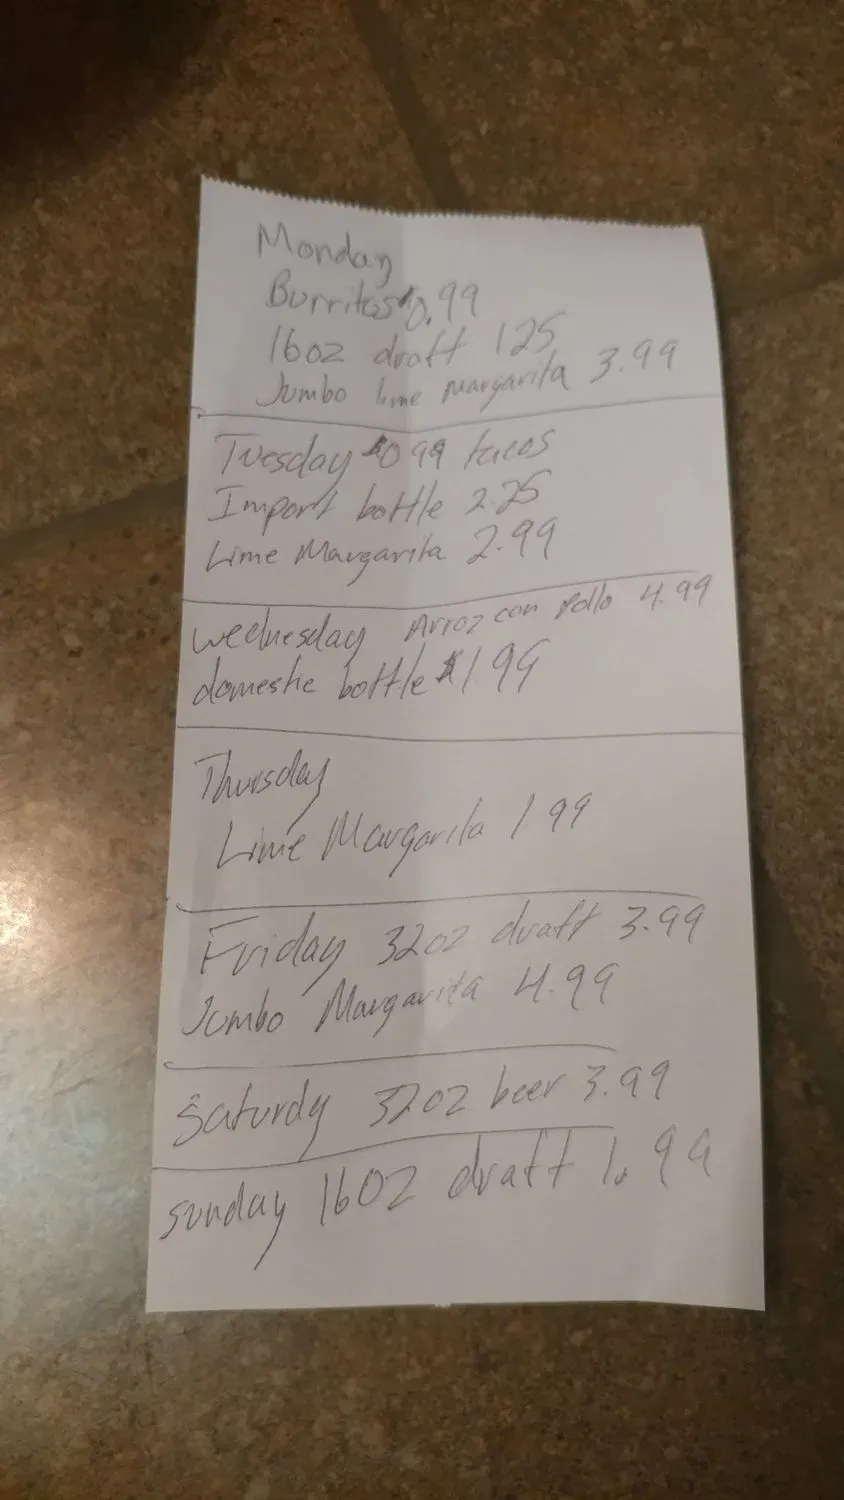 Monday
Burritos 0.99
16oz draft 125
Jumbo lime margarita 3.99
Tuesday $0 99 tacos
Import bottle 2.25
Lime Margarita 2.99
wednesday Arroz con pollo 4.99
domestic bottle $1 99
Thursday
Lime Margarita 1.99
Friday 32oz draft 3.99
Jumbo Margarita 4.99
Saturdy 32oz beer 3.99
sunday 16oz draft 1.99